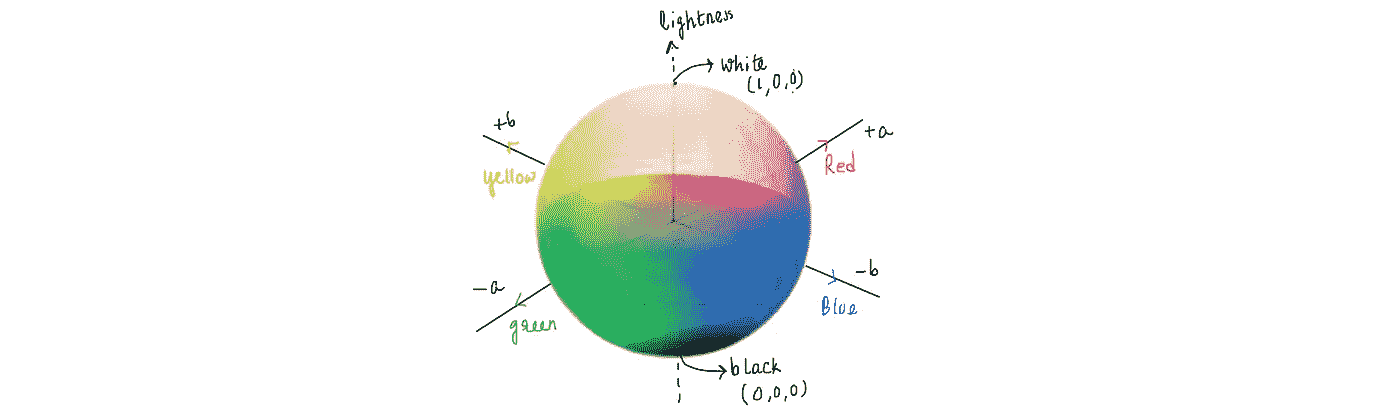 lightness
white
(1,0,0)
+b
+a
yellow
Red
-a
-b
green
Blue
black
(0,0,0)